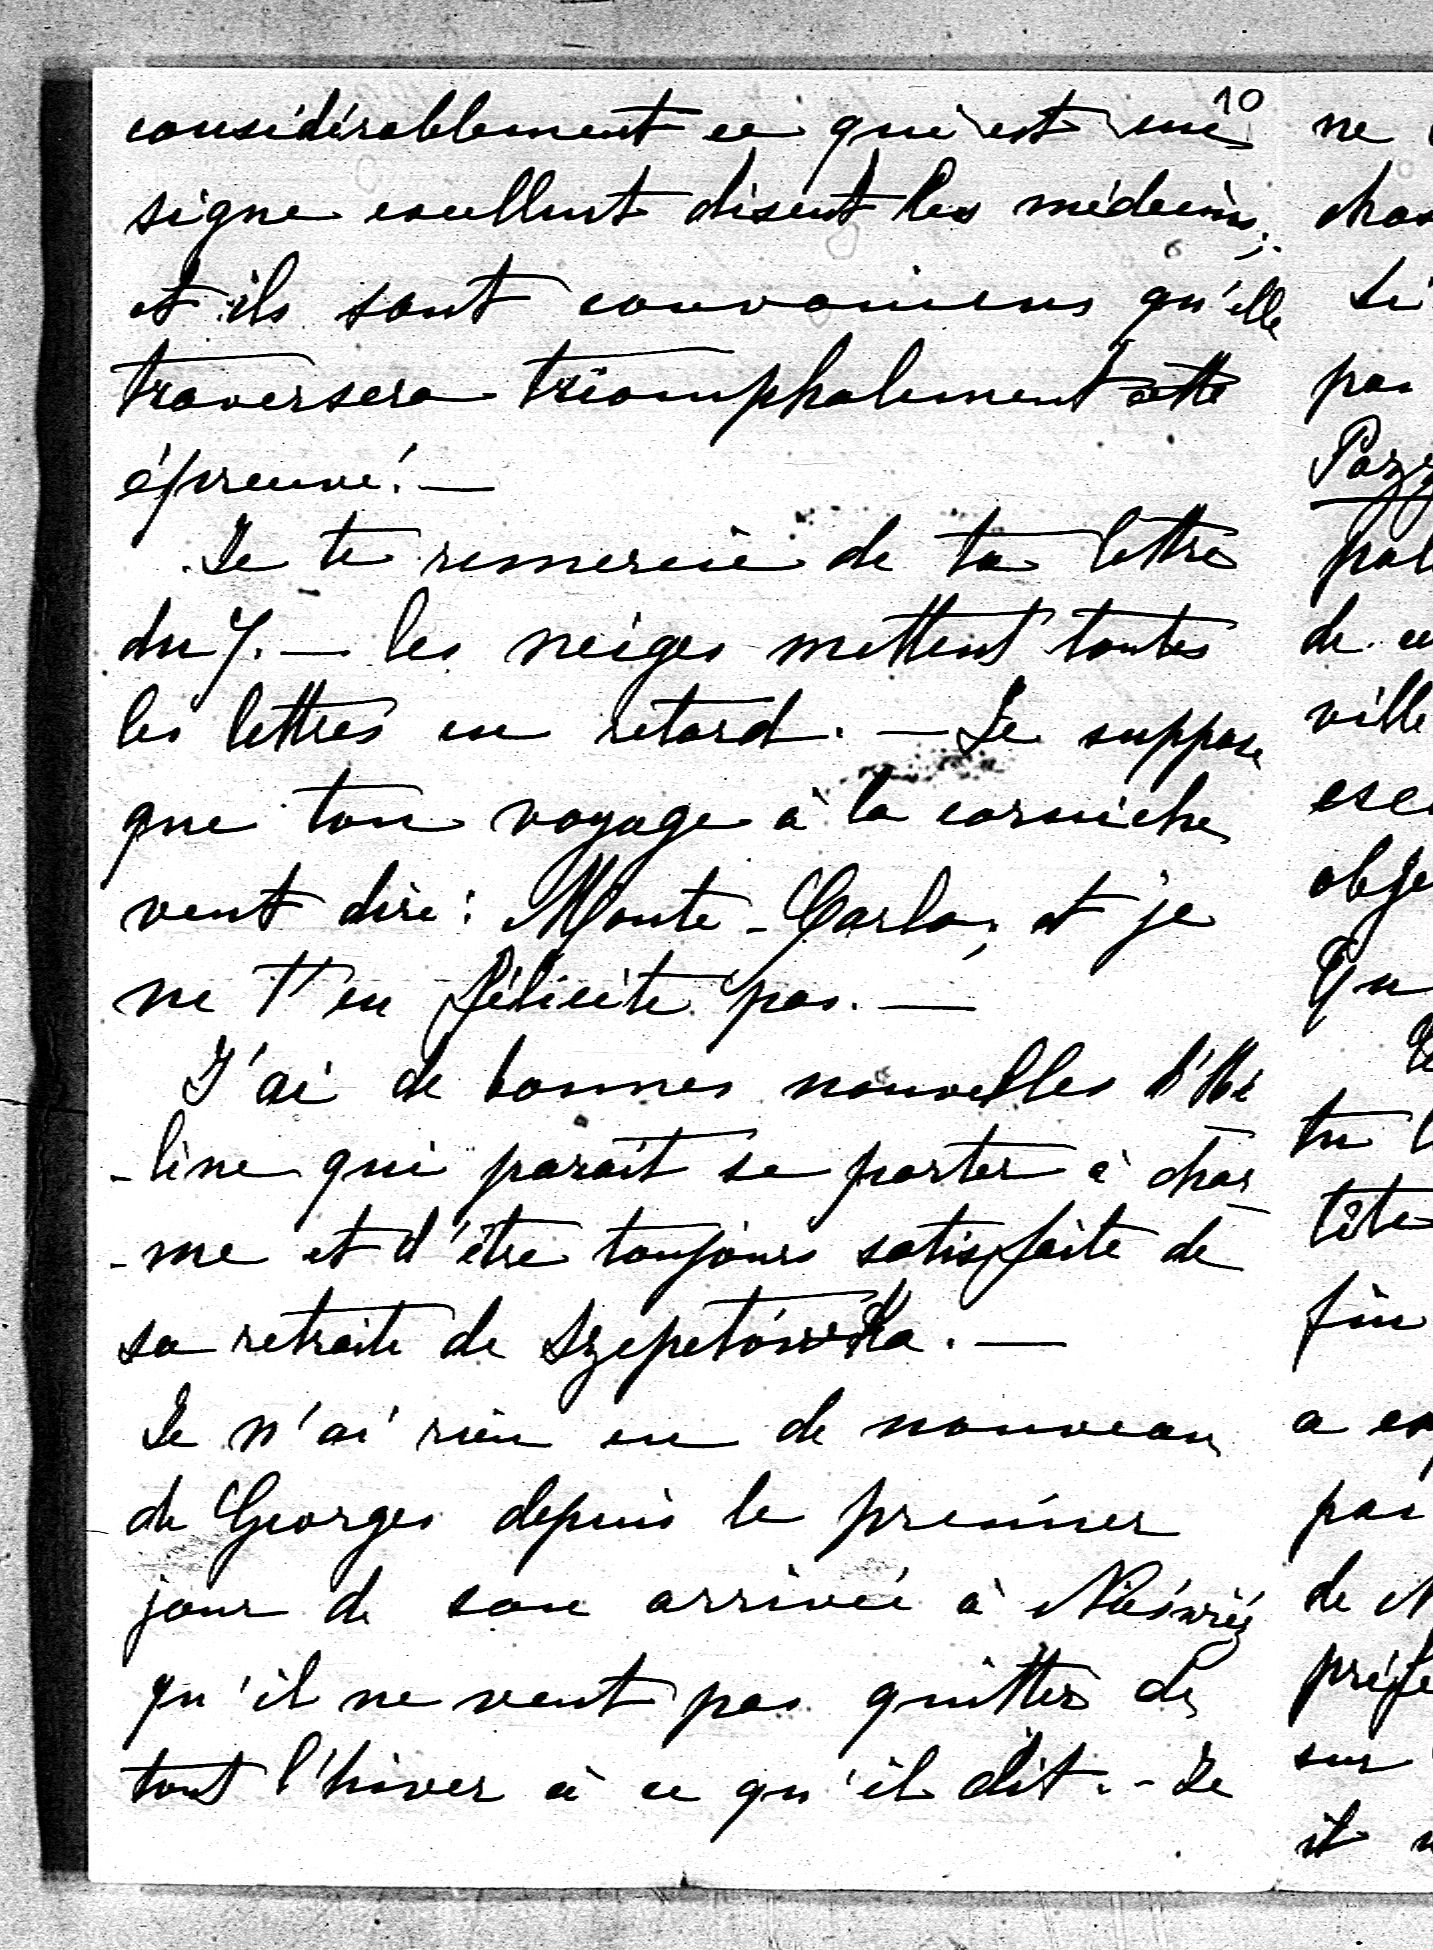 10
considérablement ce qui est une
signe excellent disent les médecins;
et ils sont convaincus qu'elle
traversera triomphalement cette
épreuve! —
Je te remercie de ta lettre
du 7. — les neiges mettent toutes
les lettres en retard. — Je suppose
que ton voyage à la corniche
veut dire: Monte-Carlo, et je
ne t'en félicite pas. —
J'ai de bonnes nouvelles d'Hé
-line qui parait se porter à char
-me et d'être toujours satisfaite de
sa retraite de Szepetówka. —
Je n'ai rien eu de nouveau
de Georges depuis le premier
jour de son arrivée à Nieśwież
qu'il ne veut pas quitter de
tout l'hiver à ce qu'il dit. - Je
ne
pas
de ce
ville
tu
tête
fin
pas
de
sur
il